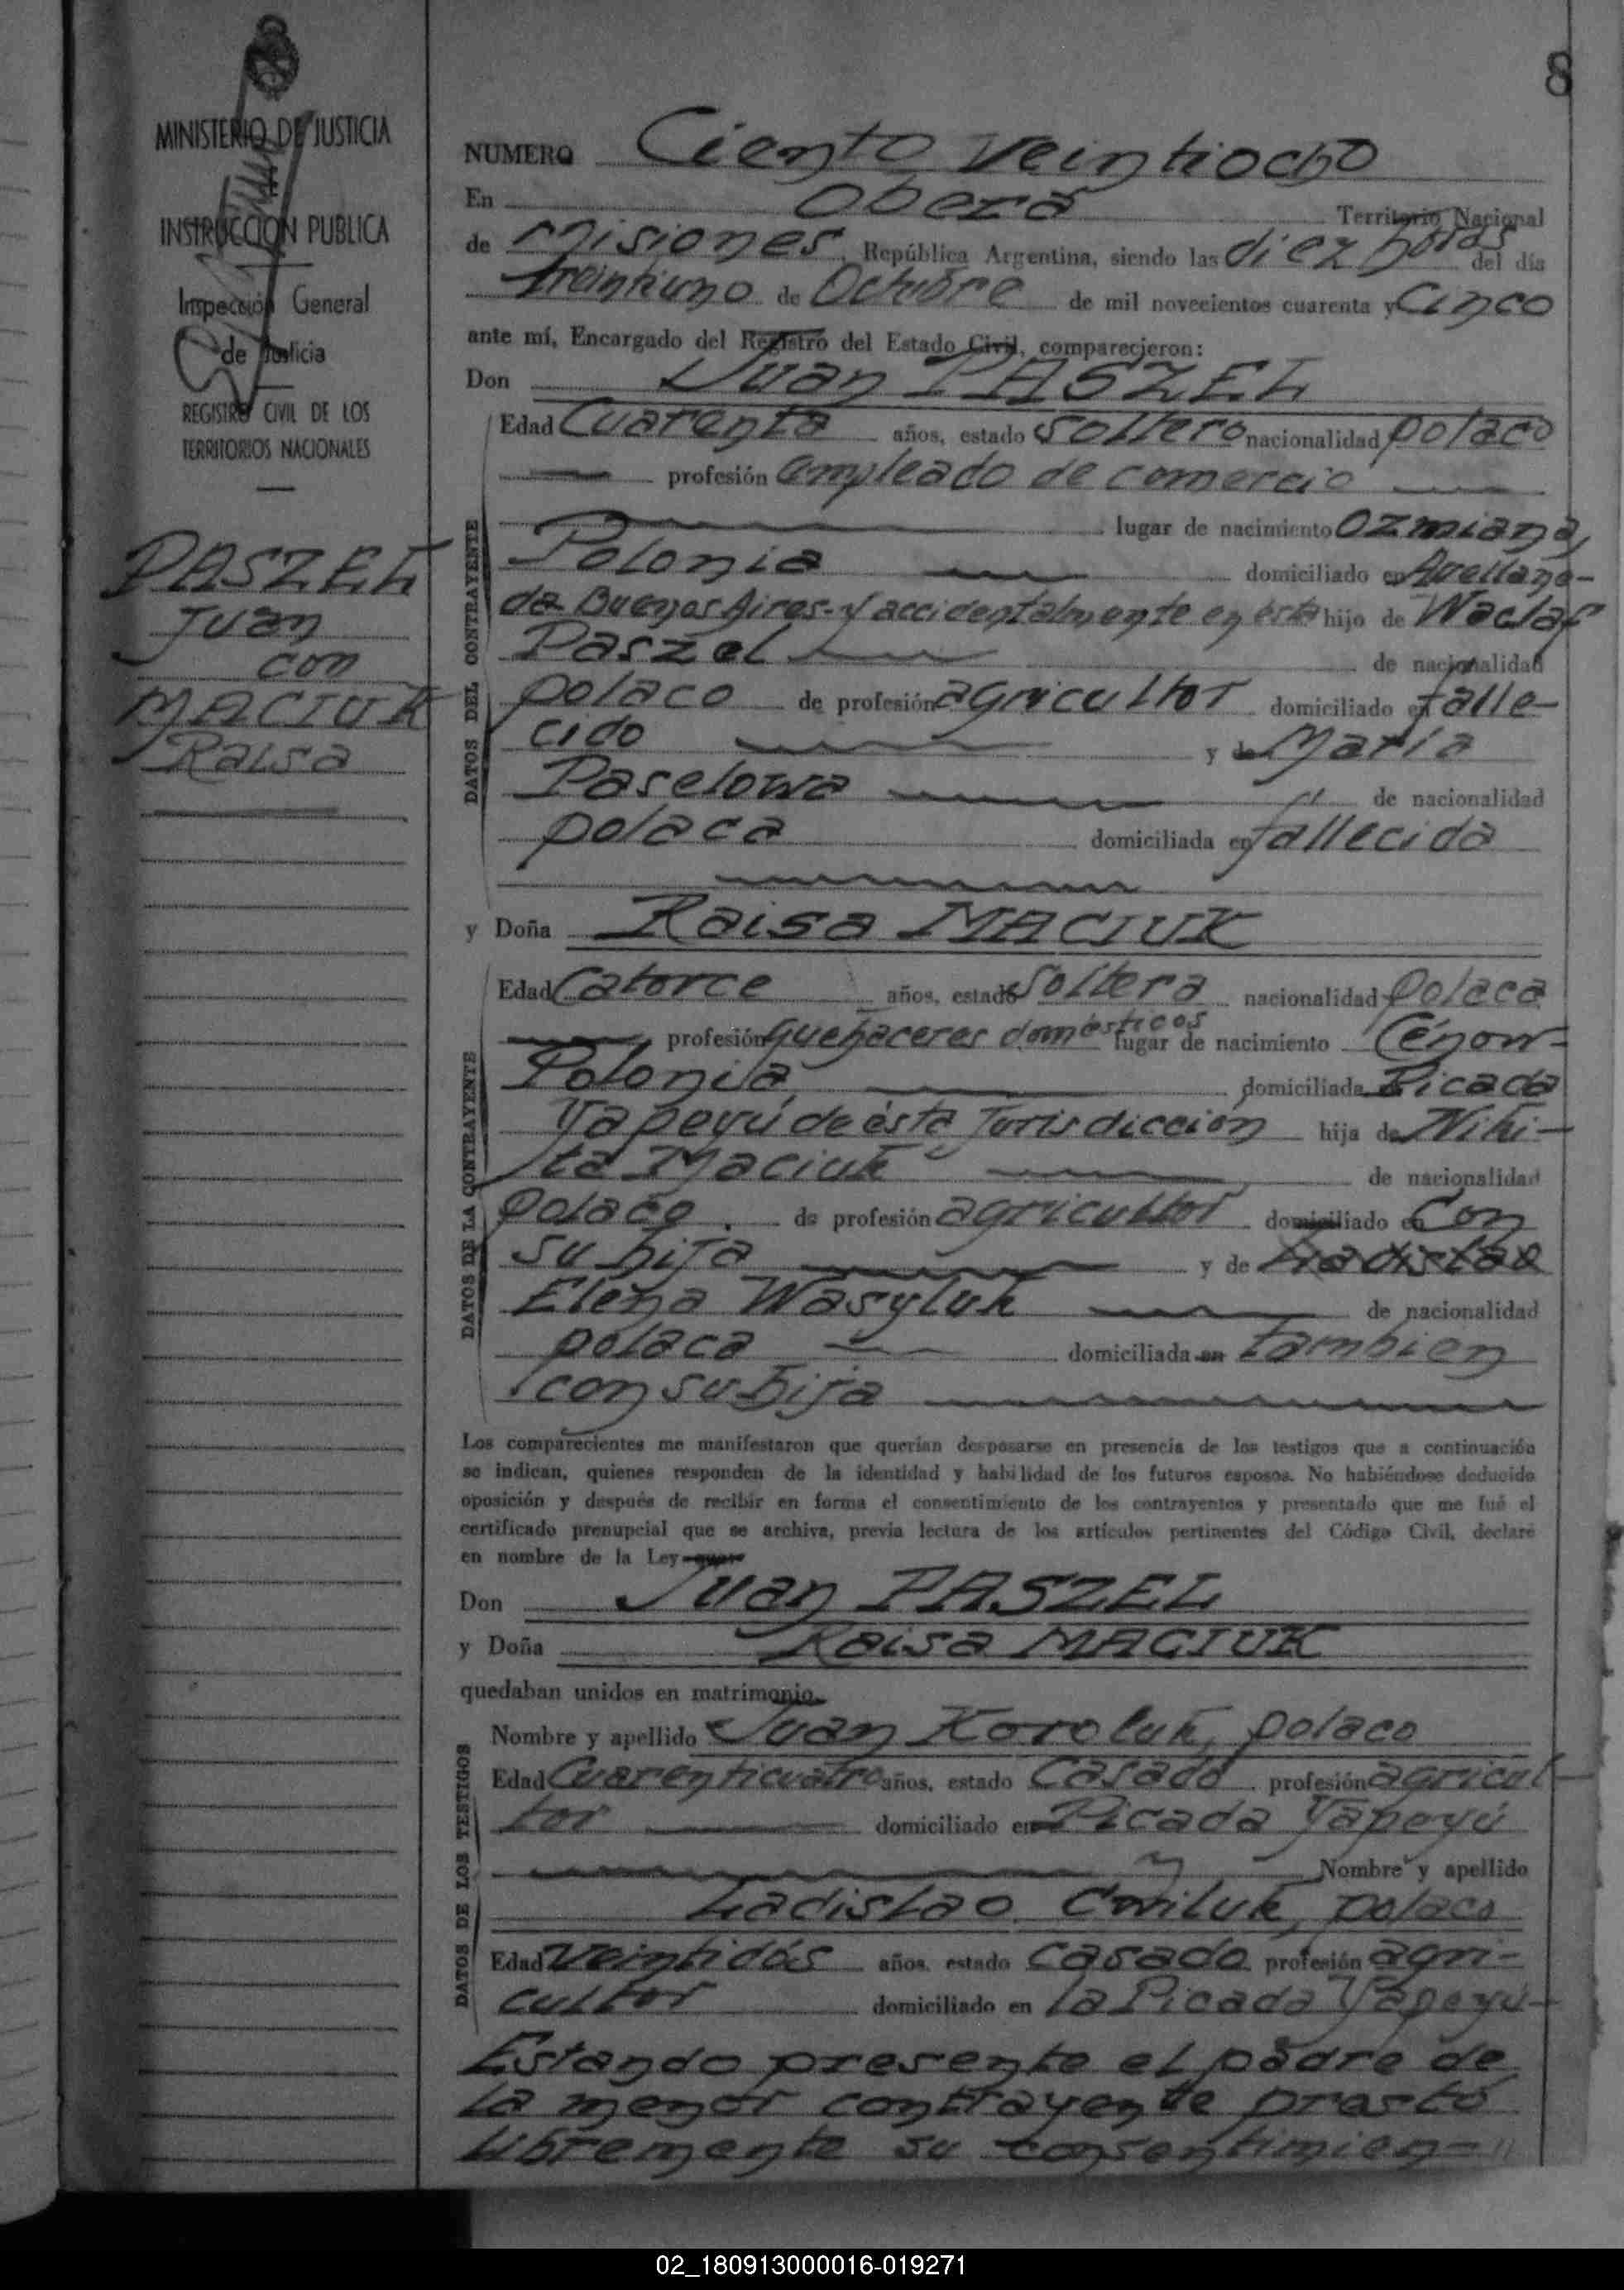 8
MINISTERIO DE JUSTICIA
INSTRUCCION PUBLICA
Inspección General
de Justicia
REGISTRO CIVIL DE LOS
TERRITORIOS NACIONALES
PASZEL
Juan
con
MACIUK
Raisa
NUMERO Ciento veintiocho
En Oberá Territorio Nacional
de Misiones, República Argentina, siendo las diez horas del día
treintiuno de Octubre de mil novecientos cuarenta y Cinco
ante mí, Encargado del Registro del Estado Civil, comparecieron:
Don Juan PASZEL
DATOS DEL CONTRAYENTE
Edad Cuarenta años, estado soltero nacionalidad polaco
profesión empleado de comercio
lugar de nacimiento Ozmiana,
Polonia domiciliado en Avellane-
da Buenos Aires-y accidentalmente en ésta hijo de Waclaf
Paszel de nacionalidad
polaco de profesión agricultor domiciliado en falle-
cido y de Maria
Paselowa de nacionalidad
polaca domiciliada en fallecida
y Doña Raisa MACIUK
DATOS DE LA CONTRAYENTE
Edad Catorce años, estado soltera nacionalidad polaca
profesión quehaceres domésticos lugar de nacimiento
Polonia domiciliada Picada
Yapeyú de ésta Jurisdicción hija de Niki-
ta Maciuk de nacionalidad
polaco de profesión agricultor domiciliado en Con
su hija y de
Elena Wasyluk de nacionalidad
polaca domiciliada en tambien
con su hija
Los comparecientes me manifestaron que querían desposarse en presencia de los testigos que a continuación
se indican, quienes responden de la identidad y habilidad de los futuros esposos. No habiéndose deducido
oposición y después de recibir en forma el consentimiento de los contrayentes y presentado que me fué el
certificado prenupcial que se archiva, previa lectura de los artículos pertinentes del Código Civil, declaré
en nombre de la Ley que
Don Juan PASZEL
y Doña Raisa MACIUK
quedaban unidos en matrimonio.
DATOS DE LOS TESTIGOS
Nombre y apellido Juan Koroluk, polaco
Edad Cuarenticuatro años, estado Casado profesión agricul-
tor domiciliado en Picada Yapeyú
y Nombre y apellido
Ladislao Cwiluk, polaco
Edad veintidós años, estado casado profesión agri-
cultor domiciliado en la Picada Yapeyú-
Estando presente el padre de
la menor contrayente prestó
libremente su consentimien-
02_180913000016-019271